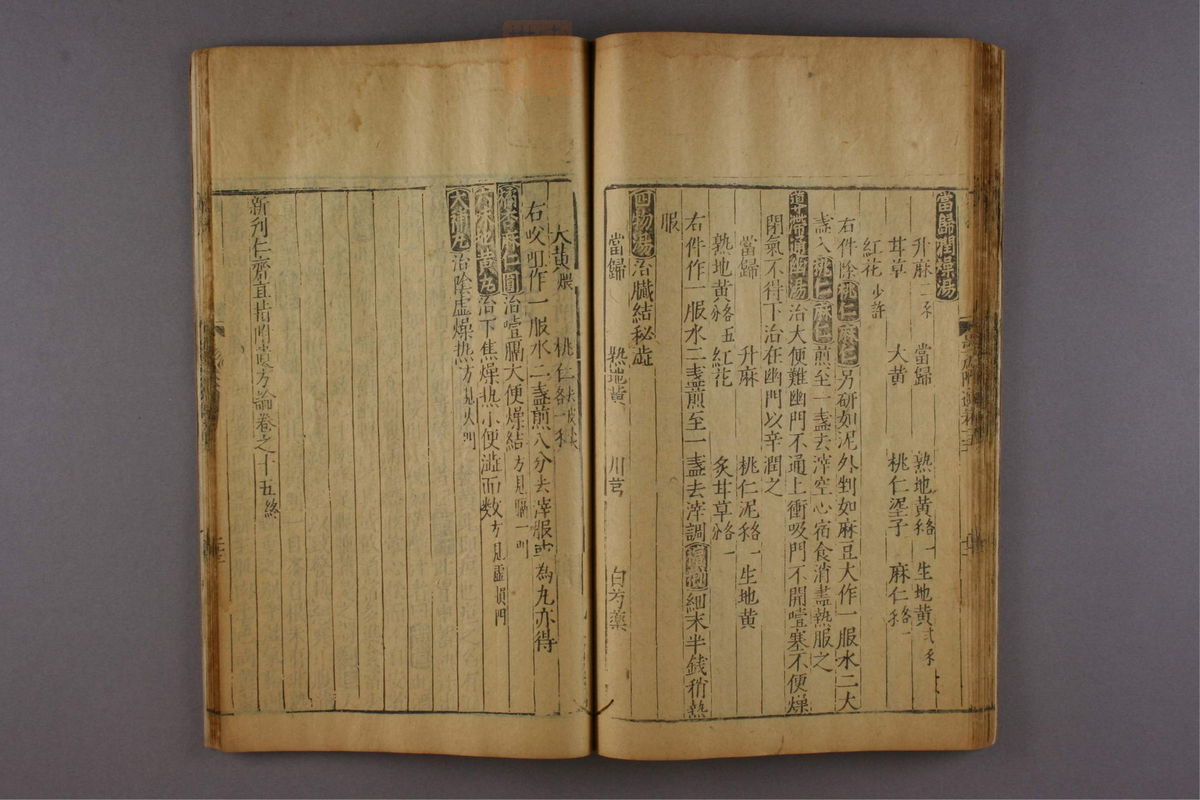 當歸潤燥湯
升麻二錢 當歸 熟地黄各一錢 生地黄貳錢
甘草 大黄 桃仁埿子 麻仁各一錢
紅花少許
右件除桃仁麻仁另研如泥外剉如麻豆大作一服水二大
盞入桃仁麻仁煎至一盞去滓空心宿食消盡熱服之
導滯通幽湯治大便難幽門不通上衝吸門不開噎塞不便燥
閉氣不得下治在幽門以辛潤之
當歸 升麻 桃仁泥各一錢 生地黄
熟地黄各五分 紅花 炙甘草各一
右件作一服水二盞煎至一盞去滓調檳榔細末半錢稍熱
服
四物湯治臟結秘澁
當歸 熟地黄 川芎 白芍藥
大黄煨 桃仁各一錢
右㕮咀作一服水二盞煎八分去滓服或為丸亦得
橘杏麻仁圓治噎膈大便燥結方見膈一門
六味地黄丸治下焦燥热小便澁而数方見虚損門
大補丸治陰虚燥热方見火門
新刋仁齋直指附遺方論卷之十五終